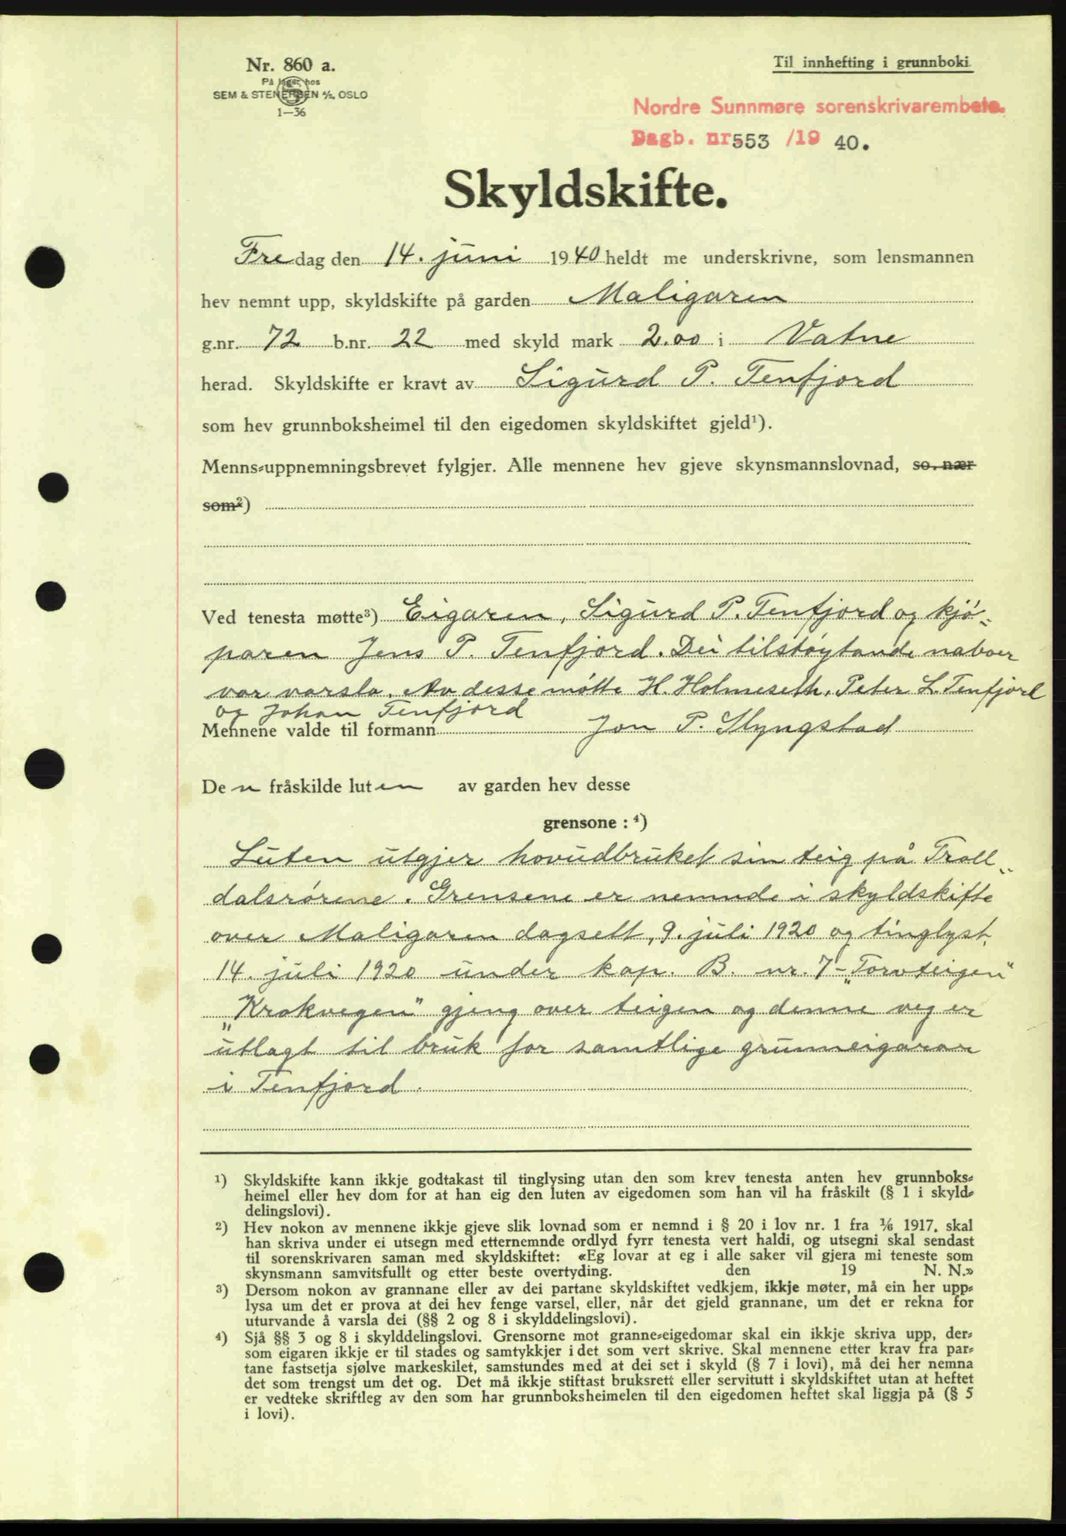 Nr. 860 a.
På lager hos
SEM & STENERSEN A/S, OSLO
1—36
Til innhefting i grunnboki
Nordre Sunnmøre sorenskrivarembete.
Dagb. nr 553 /19 40.
Skyldskifte.
Fredag den 14. juni 1940 heldt me underskrivne, som lensmannen
hev nemnt upp, skyldskifte på garden Maligaren
g.nr. 72 b.nr. 22 med skyld mark 2.00 i Vatne
herad. Skyldskifte er kravt av Sigurd P. Tenfjord
som hev grunnboksheimel til den eigedomen skyldskiftet gjeld¹).
Menns-uppnemningsbrevet fylgjer. Alle mennene hev gjeve skynsmannslovnad, so. nær
som²)
Ved tenesta møtte³) Eigaren, Sigurd P. Tenfjord og kjø-
paren Jens P. Tenfjord. Dei tilstøytande naboer
var varsla. Av desse møtte H. Holmeseth, Peter L. Tenfjord
og Johan Tenfjord
Mennene valde til formann Jon P. Slyngstad
Den fråskilde luten av garden hev desse
grensone : ⁴)
Luten utgjer hovudbruket sin teig på Troll-
dalsrørene. Grensene er nemnde i skyldskifte
over Maligaren dagsett, 9. juli 1920 og tinglyst
14. juli 1920 under kap. B. nr. 7 - "Torvteigen"
"Krokvegen" gjeng over teigen og denne veg er
utlagt til bruk for samtlige grunneigarar
i Tenfjord.
¹) Skyldskifte kann ikkje godtakast til tinglysing utan den som krev tenesta anten hev grunnboks-
heimel eller hev dom for at han eig den luten av eigedomen som han vil ha fråskilt (§ 1 i skyld-
delingslovi).
²) Hev nokon av mennene ikkje gjeve slik lovnad som er nemnd i § 20 i lov nr. 1 fra ¹/₆ 1917, skal
han skriva under ei utsegn med etternemnde ordlyd fyrr tenesta vert haldi, og utsegni skal sendast
til sorenskrivaren saman med skyldskiftet: «Eg lovar at eg i alle saker vil gjera mi teneste som
skynsmann samvitsfullt og etter beste overtyding. den 19 N. N.»
³) Dersom nokon av grannane eller av dei partane skyldskiftet vedkjem, ikkje møter, må ein her upp-
lysa um det er prova at dei hev fenge varsel, eller, når det gjeld grannane, um det er rekna for
uturvande å varsla dei (§§ 2 og 8 i skylddelingslovi).
⁴) Sjå §§ 3 og 8 i skylddelingslovi. Grensorne mot granne-eigedomar skal ein ikkje skriva upp, der-
som eigaren ikkje er til stades og samtykkjer i det som vert skrive. Skal mennene etter krav fra par-
tane fastsetja sjølve markeskilet, samstundes med at dei set i skyld (§ 7 i lovi), må dei her nemna
det som trengst um det og. Det må ikkje stiftast bruksrett eller servitutt i skyldskiftet utan at heftet
er vedteke skriftleg av den som har grunnboksheimelen til den eigedomen heftet skal liggja på (§ 5
i lovi).